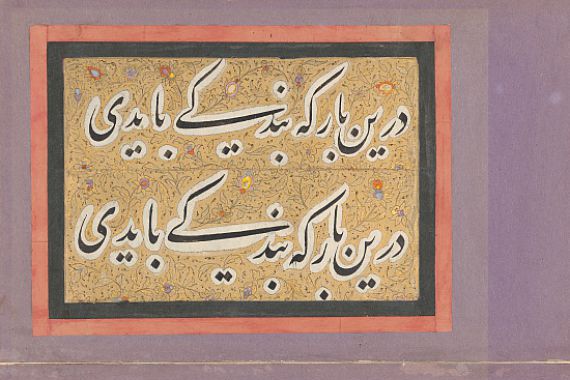 درین بارکه بندکے بایدی
درین بارکه بندکے بایدی